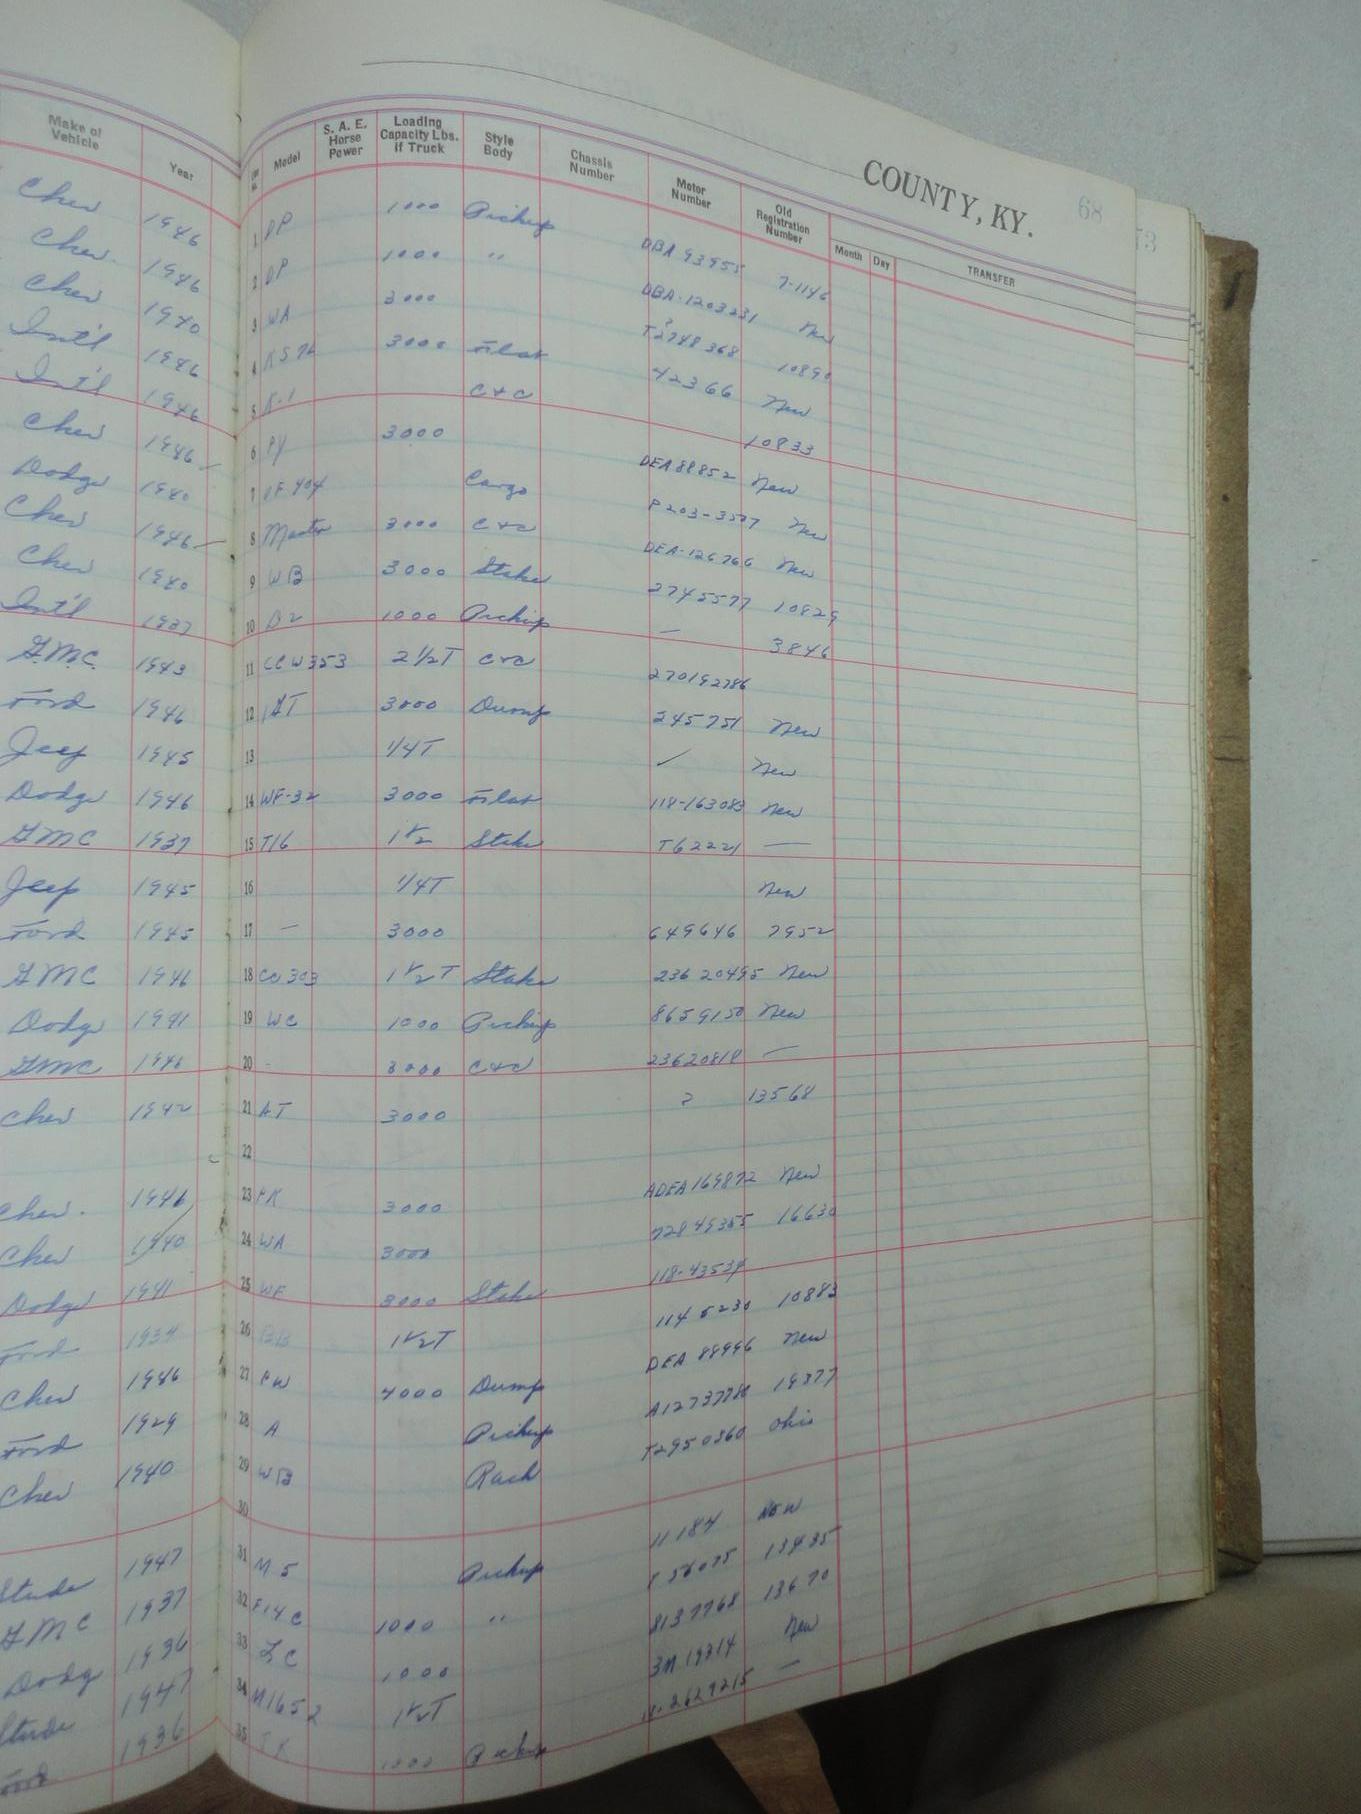 COUNTY, KY. 68
73
Make of Vehicle Year Line No. Model S. A. E. Horse Power Loading Capacity Lbs. if Truck Style Body Chassis Number Motor Number Old Registration Number Month Day TRANSFER
Chev 1946 1 DP 1000 Pickup DBA 93955 7-1146
Chev. 1946 2 DP 1000 " DBA-1203231 New
Chev 1940 3 WA 3000 T2748368 10890
Int'l 1946 4 3000 Flat 42366 New
Int'l 1946 5 K-1 C+C 10833
Chev 1946 6 3000 DEA88852 New
Dodge 1940 7 Cargo New
Chev 1946 8 Master 3000 C+C DEA-126766 New
Chev 1940 9 WB 3000 Stake 2745577 10829
Int'l 1937 10 D2 1000 Pickup — 3846
G.M.C. 1943 11 CCW353 2 1/2T C+C 270192786
Ford 1946 12 3000 Dump 245751 New
Jeep 1945 13 1/4T ✓ New
Dodge 1946 14 WF-32 3000 Flat 118-163083 New
GMC 1937 15 T16 1 1/2 Stake T62221 —
Jeep 1945 16 1/4T New
Ford 1945 17 — 3000 649646 7952
GMC 1946 18 CC303 1 1/2T Stake 23620495 New
Dodge 1941 19 WC 1000 Pickup 8659150 New
GMC 1946 20 - 3000 C+C 23620818 —
Chev 1942 21 AT 3000 ? 13568
22
Chev. 1946 23 PK 3000 ADEA169872 New
Chev 1940 24 WA 3000 16630
Dodge 1941 25 WF 3000 Stake 118-43534
Ford 1934 26 BB 1 1/2T 1145230 10883
Chev 1946 27 PW 4000 Dump DEA 88996 New
Ford 1929 28 A Pickup A12737780 19377
Chev 1940 29 WB Rack T2950360 Ohio
30
Stude 1947 31 M5 Pickup 11184 New
GMC 1937 32 F14C 1000 " 13435
Dodg 1936 33 LC 1000 8137768 13670
Stude 1947 34 M1652 1 1/2T 3M19314 New
Ford 1936 35 1000 Pickup 2629215 —